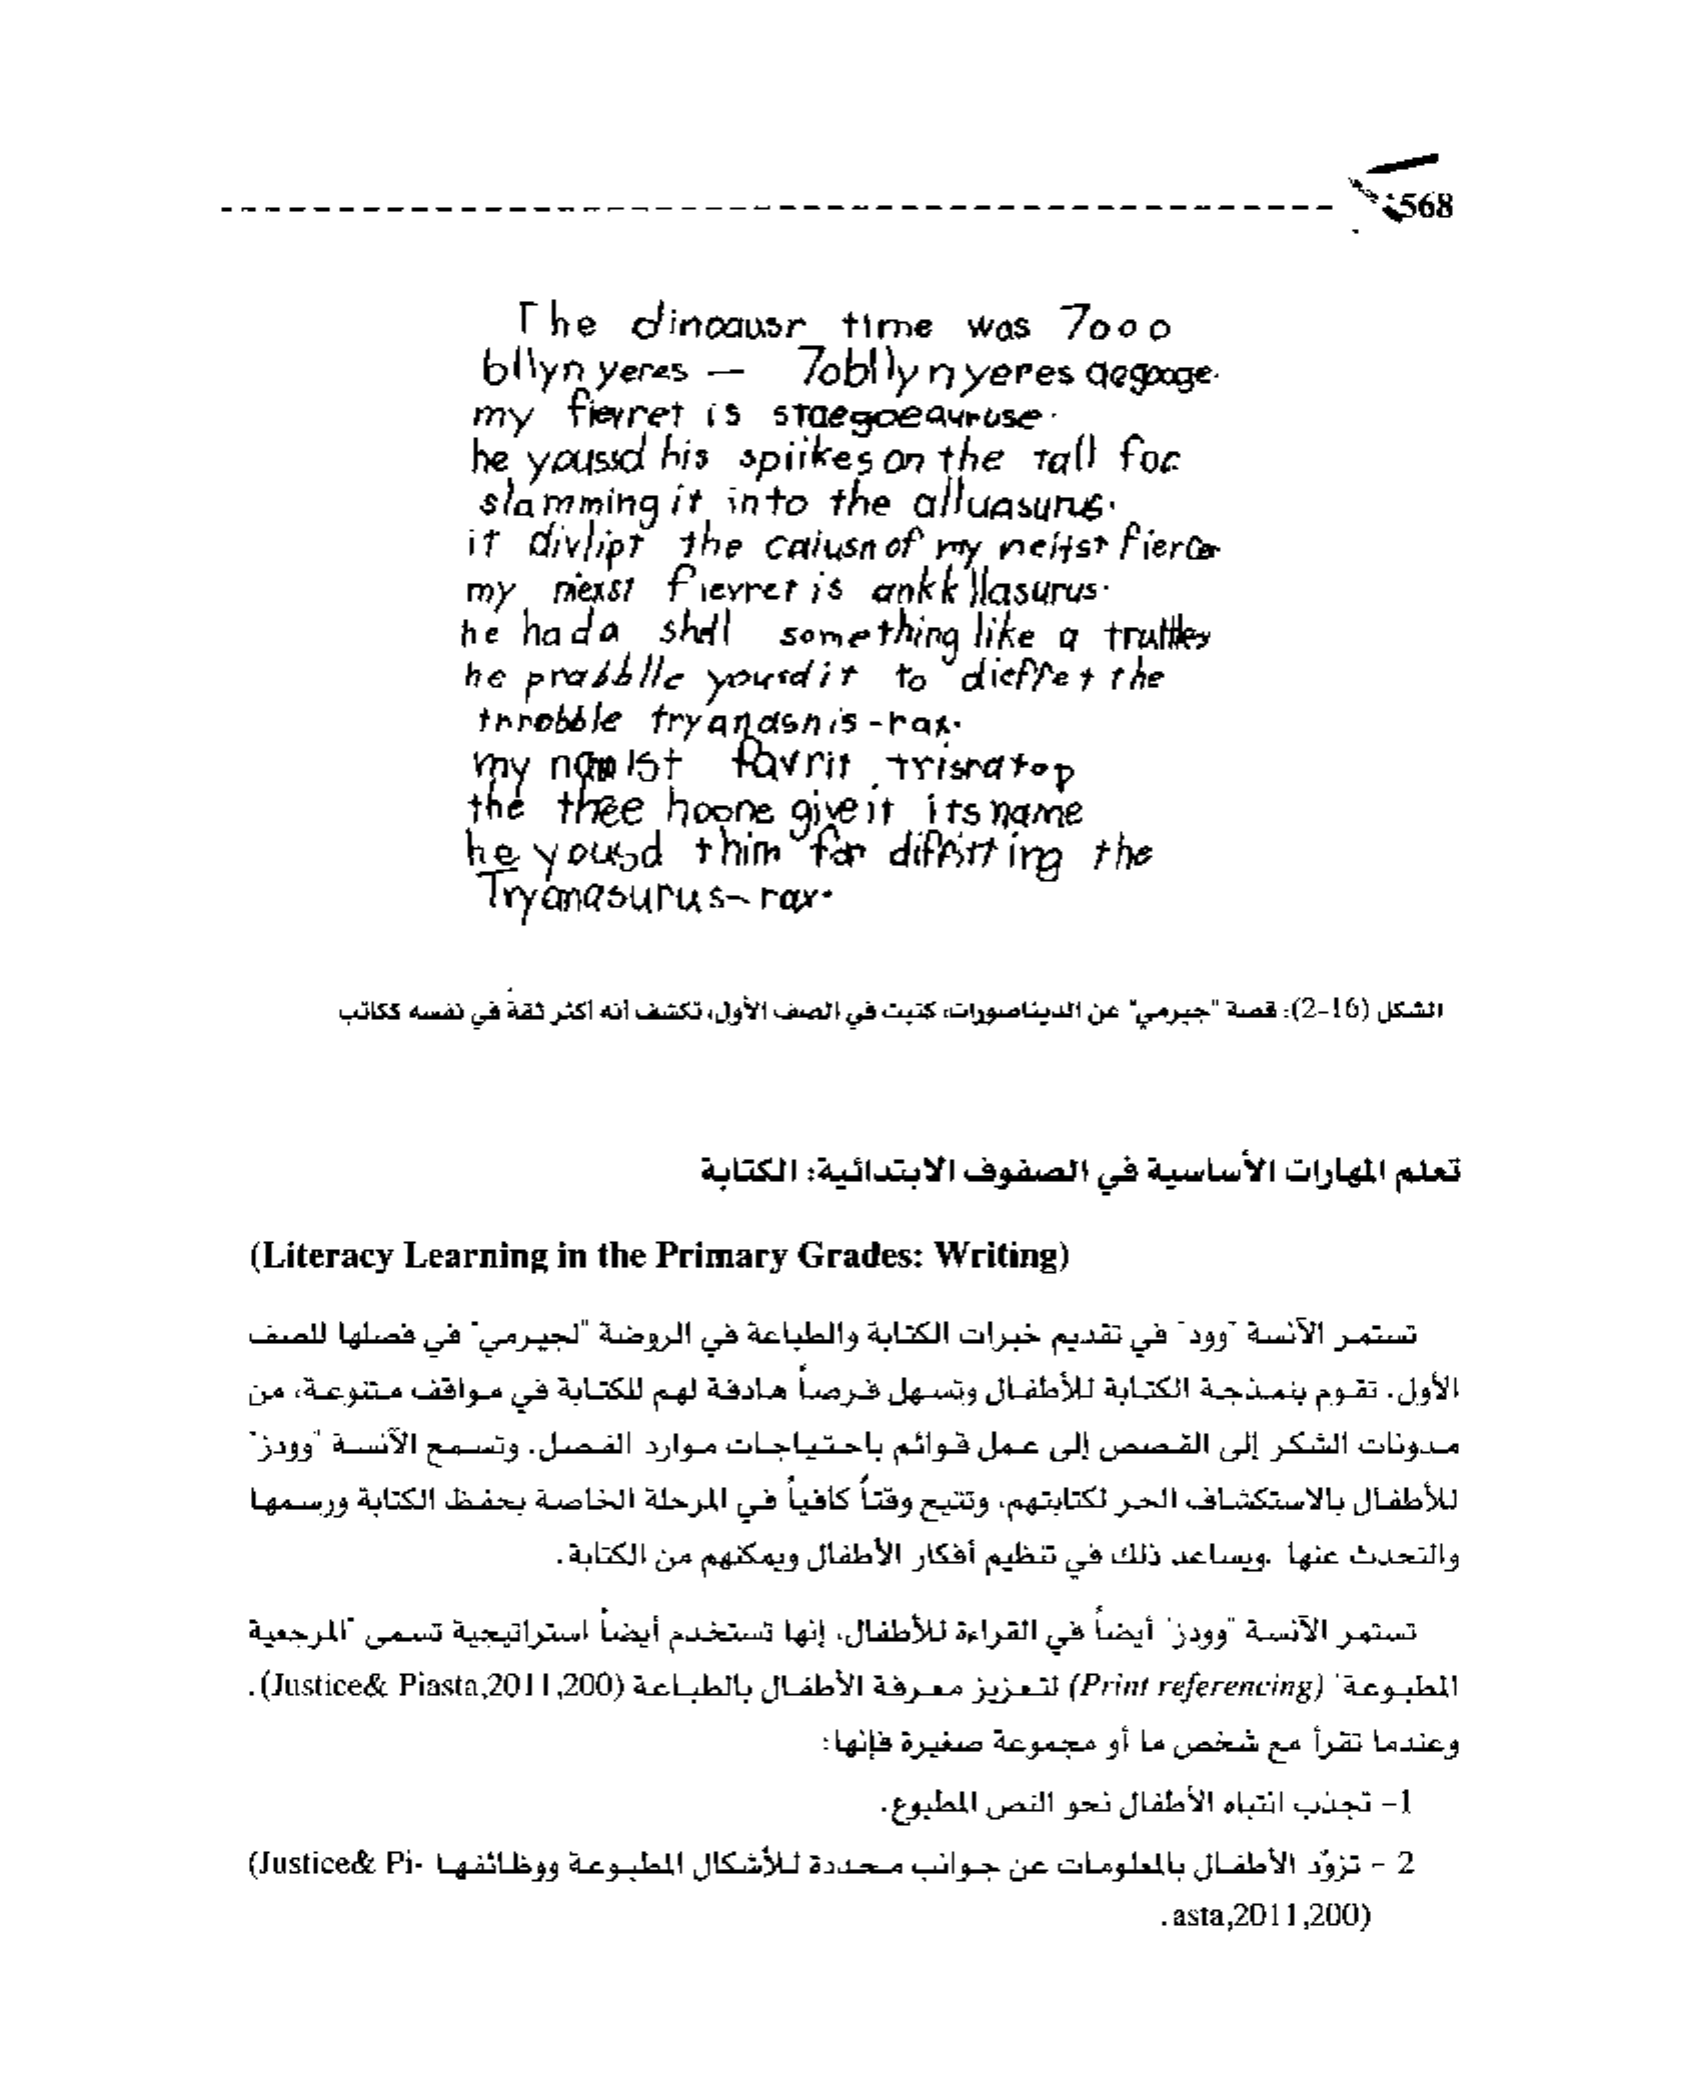 568
The dinoausr time was 7000
bllyn yeres — 70bllyn yeres
my fievret is staegoeauruse.
he youssd his spiikes on the tall for
slamming it into the alluasurus.
it divlipt the caiusn of my neitst
my niexst fievret is ankkllasurus.
he had a shell something like a
he prabblle yousd it to dieffet the
trrobble tryanasnis-rax.
my favrit trisratop
the thee hoone give it its name
he yousd thim for diffitting the
Tryanasurus-rax.
الشكل (16-2): قصة "جيرمي" عن الديناصورات، كتبت في الصف الأول، تكشف أنه أكثر ثقةً في نفسه ككاتب
تعلم المهارات الأساسية في الصفوف الابتدائية: الكتابة
(Literacy Learning in the Primary Grades: Writing)
تستمر الآنسة "وود" في تقديم خبرات الكتابة والطباعة في الروضة "لجيرمي" في فصلها للصف
الأول. تقوم بنمذجة الكتابة للأطفال وتسهل فرصاً هادفة لهم للكتابة في مواقف متنوعة، من
مدونات الشكر إلى القصص إلى عمل قوائم باحتياجات موارد الفصل. وتسمح الآنسة "وودز"
للأطفال بالاستكشاف الحر لكتابتهم، وتتيح وقتاً كافياً في المرحلة الخاصة بحفظ الكتابة ورسمها
والتحدث عنها .ويساعد ذلك في تنظيم أفكار الأطفال ويمكنهم من الكتابة.
تستمر الآنسة "وودز" أيضاً في القراءة للأطفال، إنها تستخدم أيضاً استراتيجية تسمى "المرجعية
المطبوعة" (Print referencing) لتعزيز معرفة الأطفال بالطباعة (Justice& Piasta,2011,200).
وعندما تقرأ مع شخص ما أو مجموعة صغيرة فإنها:
1- تجذب انتباه الأطفال نحو النص المطبوع.
2 - تزوّد الأطفال بالمعلومات عن جوانب محددة للأشكال المطبوعة ووظائفها (Justice& Pi-
asta,2011,200).